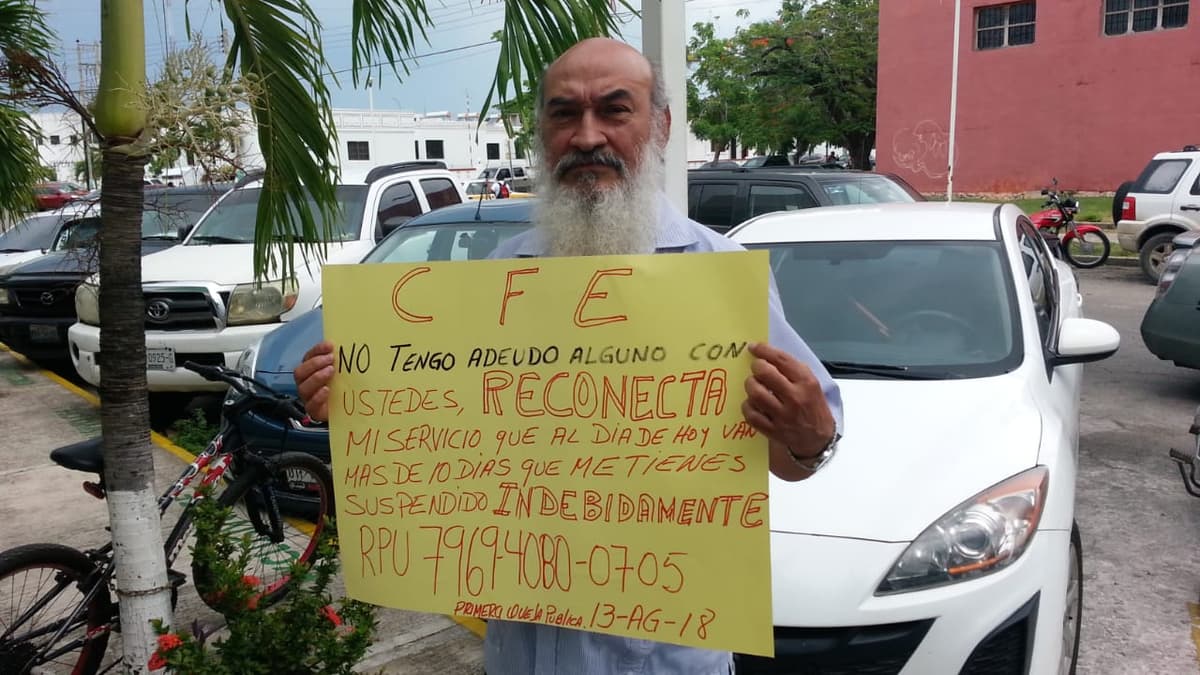 C F E
NO TENGO ADEUDO ALGUNO CON
USTEDES, RECONECTA
MI SERVICIO QUE AL DIA DE HOY VAN
MAS DE 10 DIAS QUE ME TIENES
SUSPENDIDO INDEBIDAMENTE
RPU 79694080-0705
PRIMERA QUEJA PUBLICA. 13-AG-18
0925-G